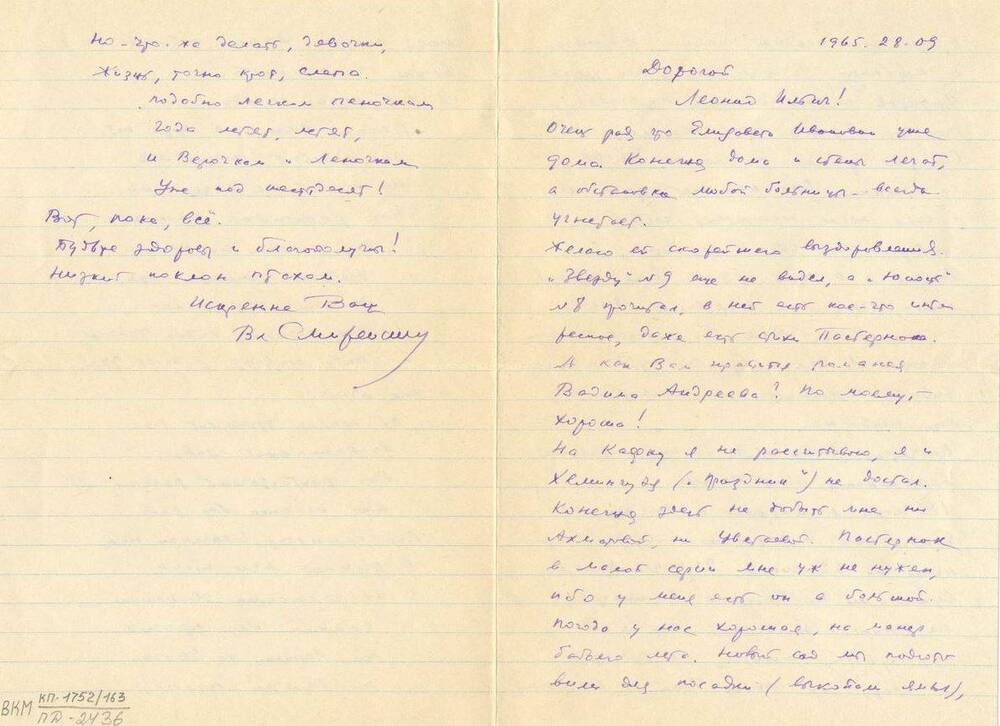 Но что-же делать, девочки,
Жизнь, точно крот, слепа.
подобно легким пеночкам
года летят, летят,
и Верочкам и Леночкам
Уже под шестьдесят!
Вот, пока, всё.
Будьте здоровы и благополучны!
Низкий поклон птахам.
Искренне Ваш
Вл Смиренский
1965. 28.09
Дорогой
Леонид Ильич!
Очень рад что Елизавета Ивановна уже
дома. Конечно дома и стены лечат,
а обстановка любой больницы всегда
угнетает.
Желаю ей скорейшего выздоровления.
"Звезду" №9 еще не видел, а "Юность"
№8 прочитал, в ней есть кое-что инте
ресное, даже есть стихи Пастернака.
А как Вам нравятся
Вадима Андреева? По моему,-
хороша!
На Кафку я не рассчитываю, я и
Хемингуэя ("Праздник") не достал.
Конечно здесь не добыть мне ни
Ахматовой, ни Цветаевой. Пастернак
в малой серии мне уж не нужен,
ибо у меня есть он в большой.
Погода у нас хорошая, на манер
бабьего лета. Новый сад мы подгото
вили для посадки (выкопали ямы),
ВКМ КП-1752/163
ПД-2436